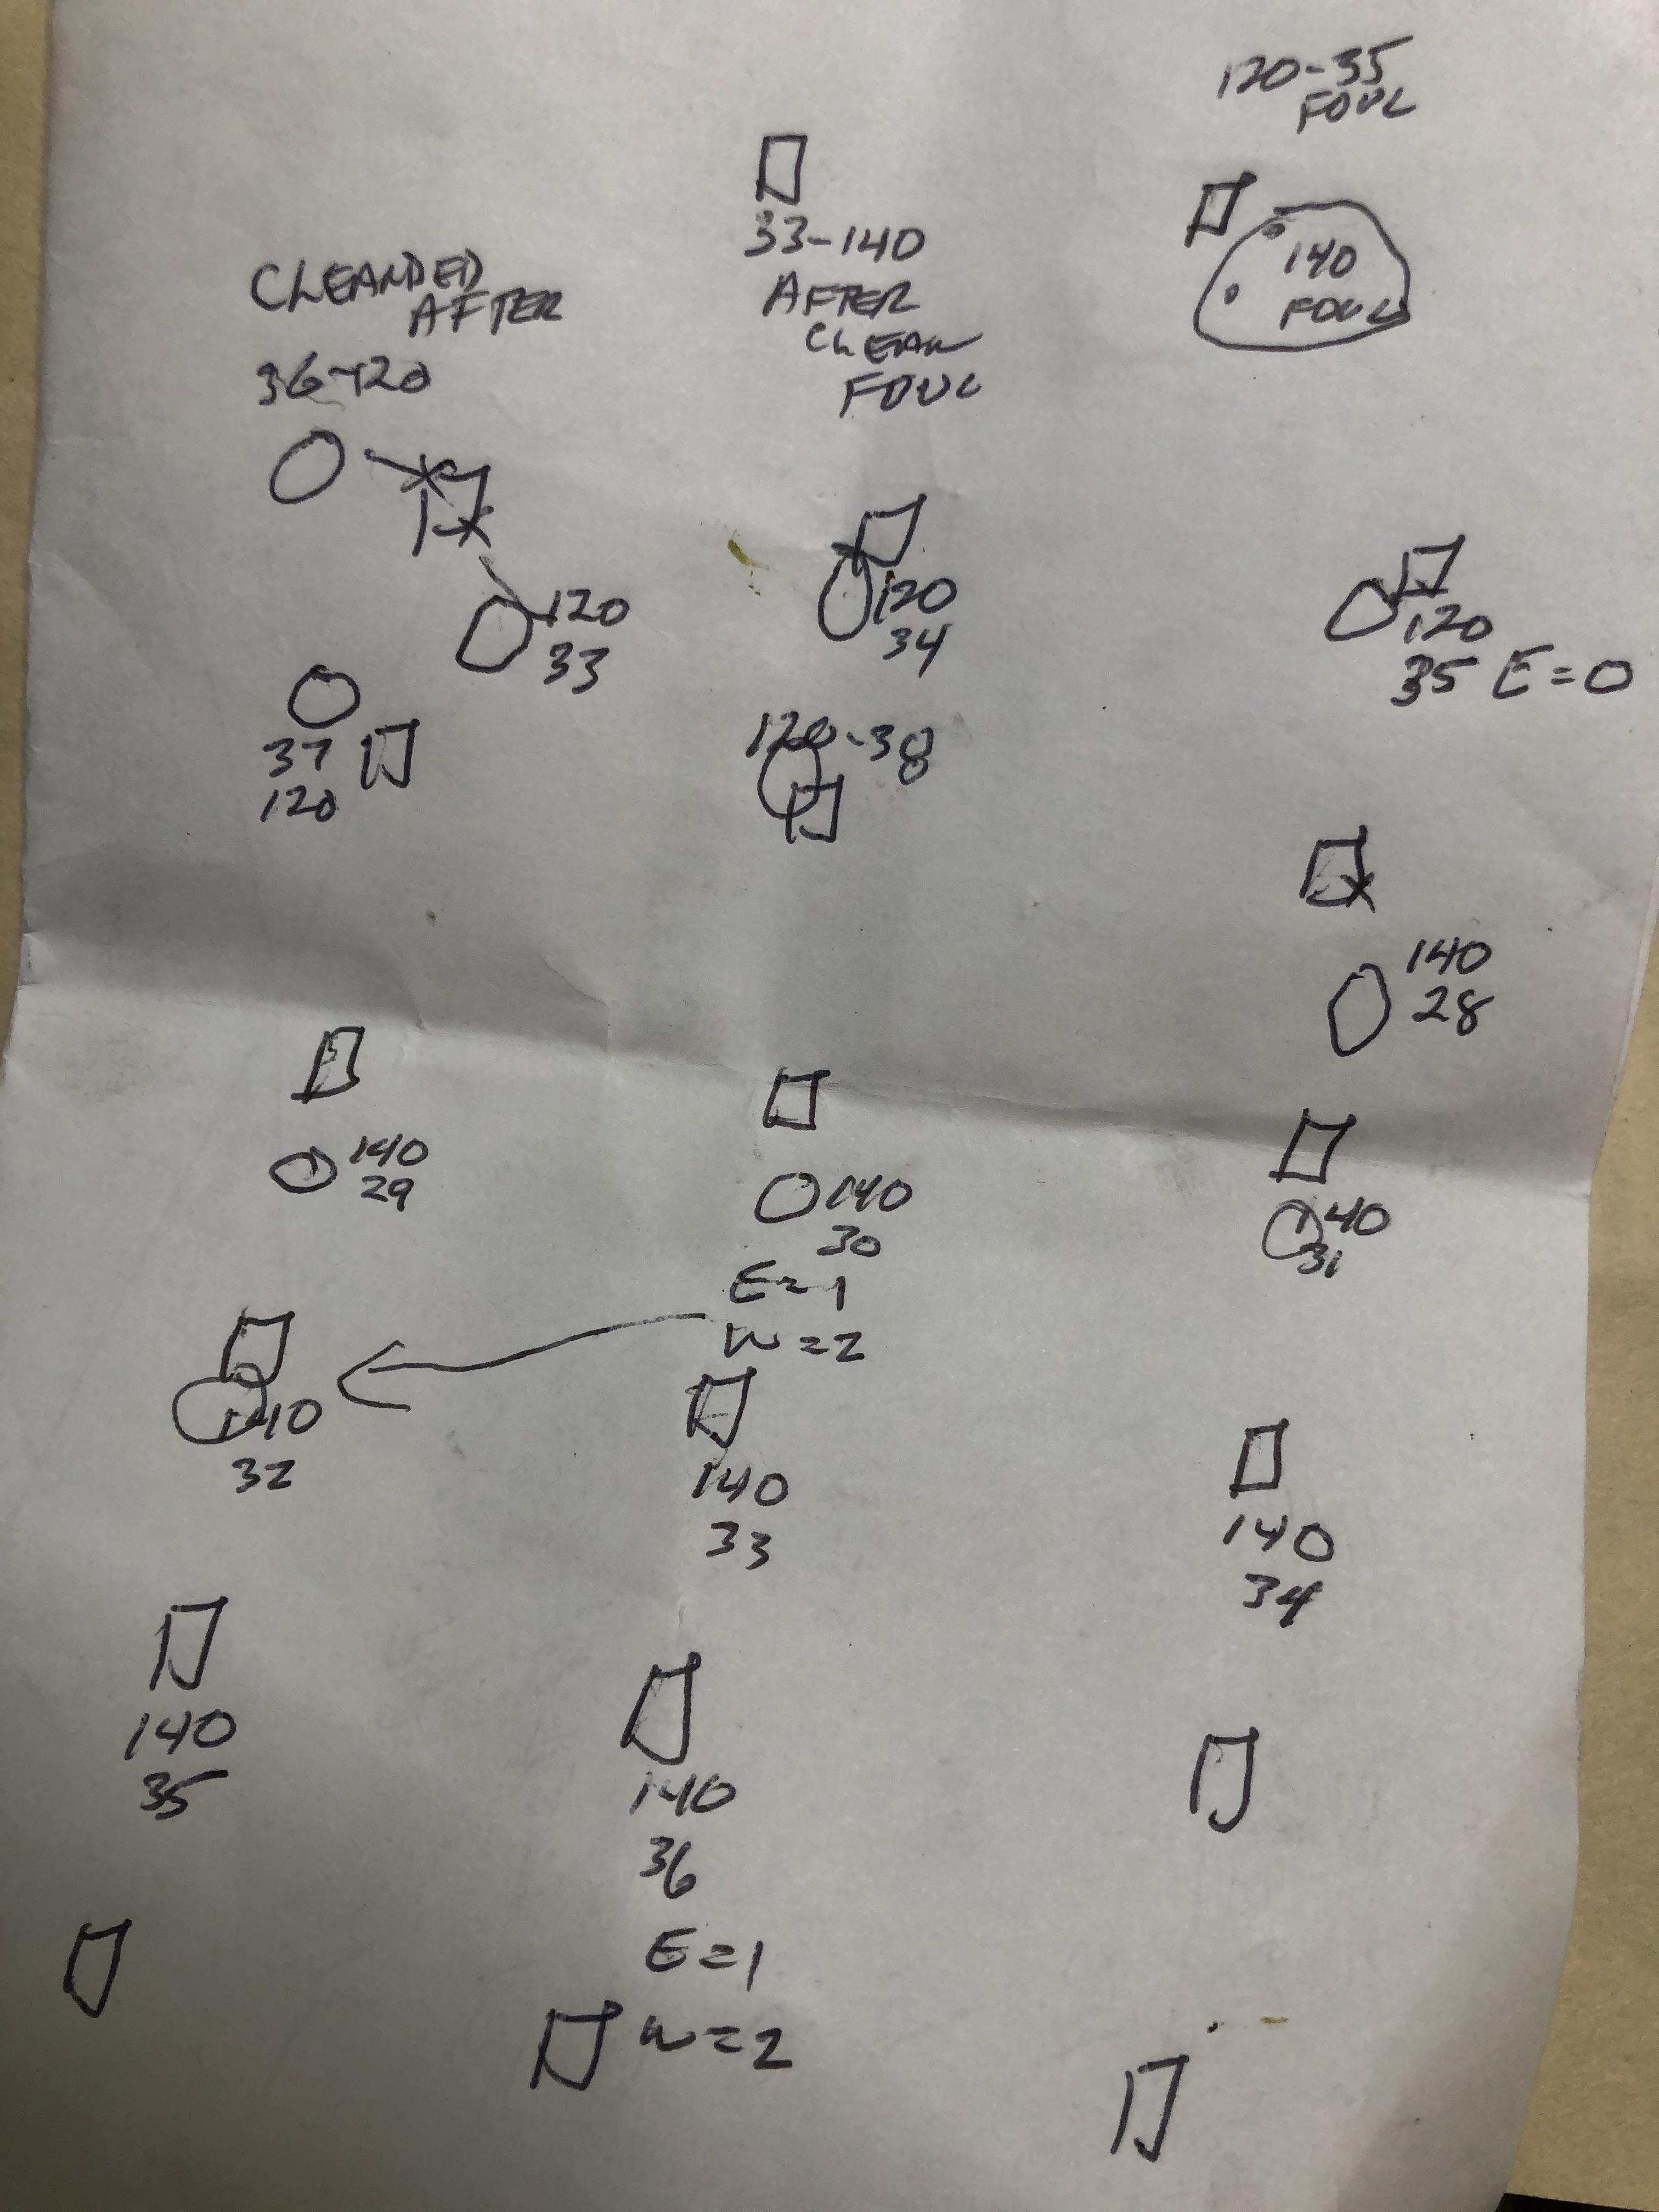 120-35
FOUL
33-140
AFTER
CLEAN
FOUL
140
FOUL
CLEANDED
AFTER
36-120
120
33
120
34
120
35 E=0
37
120
120-38
140
28
140
29
140
30
E=1
W=2
140
31
140
32
140
33
140
34
140
35
140
36
E=1
W=2